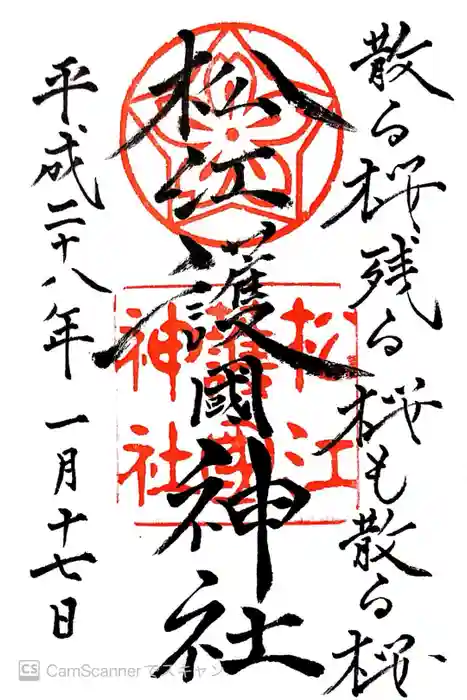 散る桜残る桜も散る桜
松江護國神社
松江
護國
神社
平成二十八年 一月十七日
CS CamScannerでスキャン